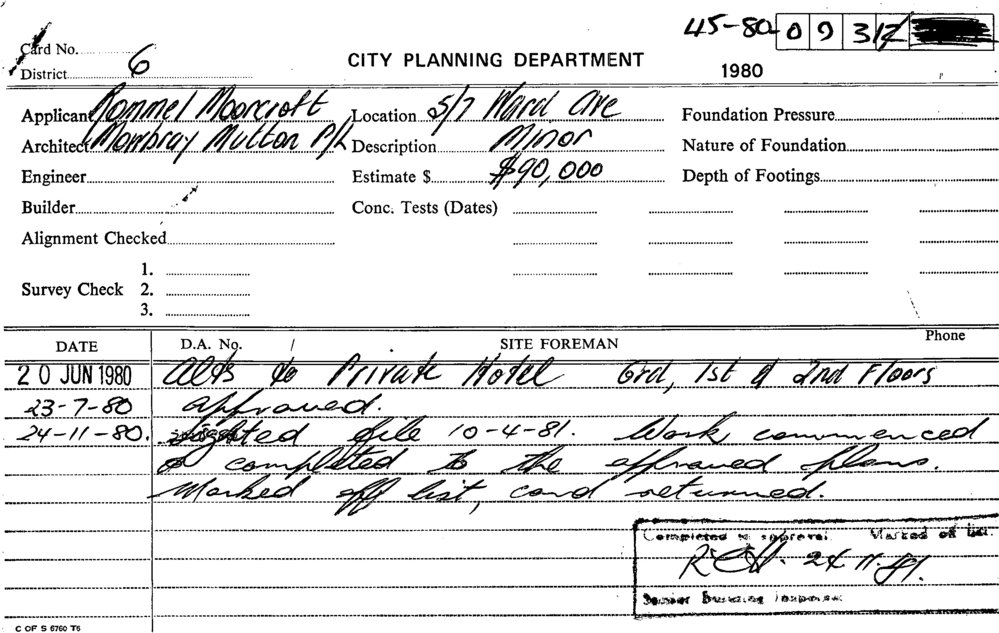 45-80- 0 9 3 12
Card No.
District 6
CITY PLANNING DEPARTMENT
1980
Applicant Rommel Moorcroft Location 5/7 Ward Ave Foundation Pressure
Architect Mowbray Mutton P/L Description Minor Nature of Foundation
Engineer Estimate $ $90,000 Depth of Footings
Builder Conc. Tests (Dates)
Alignment Checked
1.
Survey Check 2.
3.
DATE D.A. No. / SITE FOREMAN Phone
20 JUN 1980 Alts to Private Hotel Grd, 1st & 2nd Floors
23-7-80 approved.
24-11-80. sighted file 10-4-81. Work commenced
& completed to the approved plans.
Marked off list, card returned.
Completed to approval Marked off list.
24.11.81.
Senior Building Inspector
C OF S 6760 T6